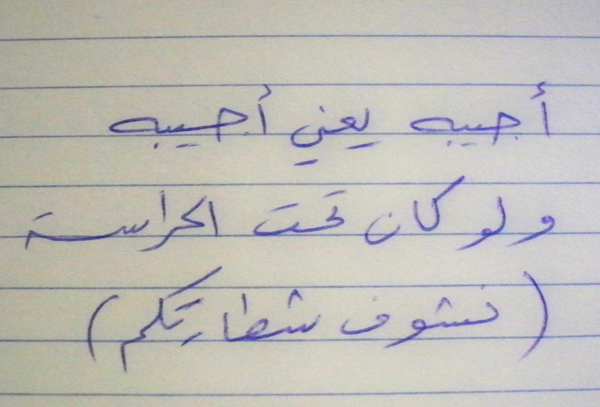 أجيبه يعني أجيبه
ولو كان تحت الحراسة
(نشوف شطارتكم)